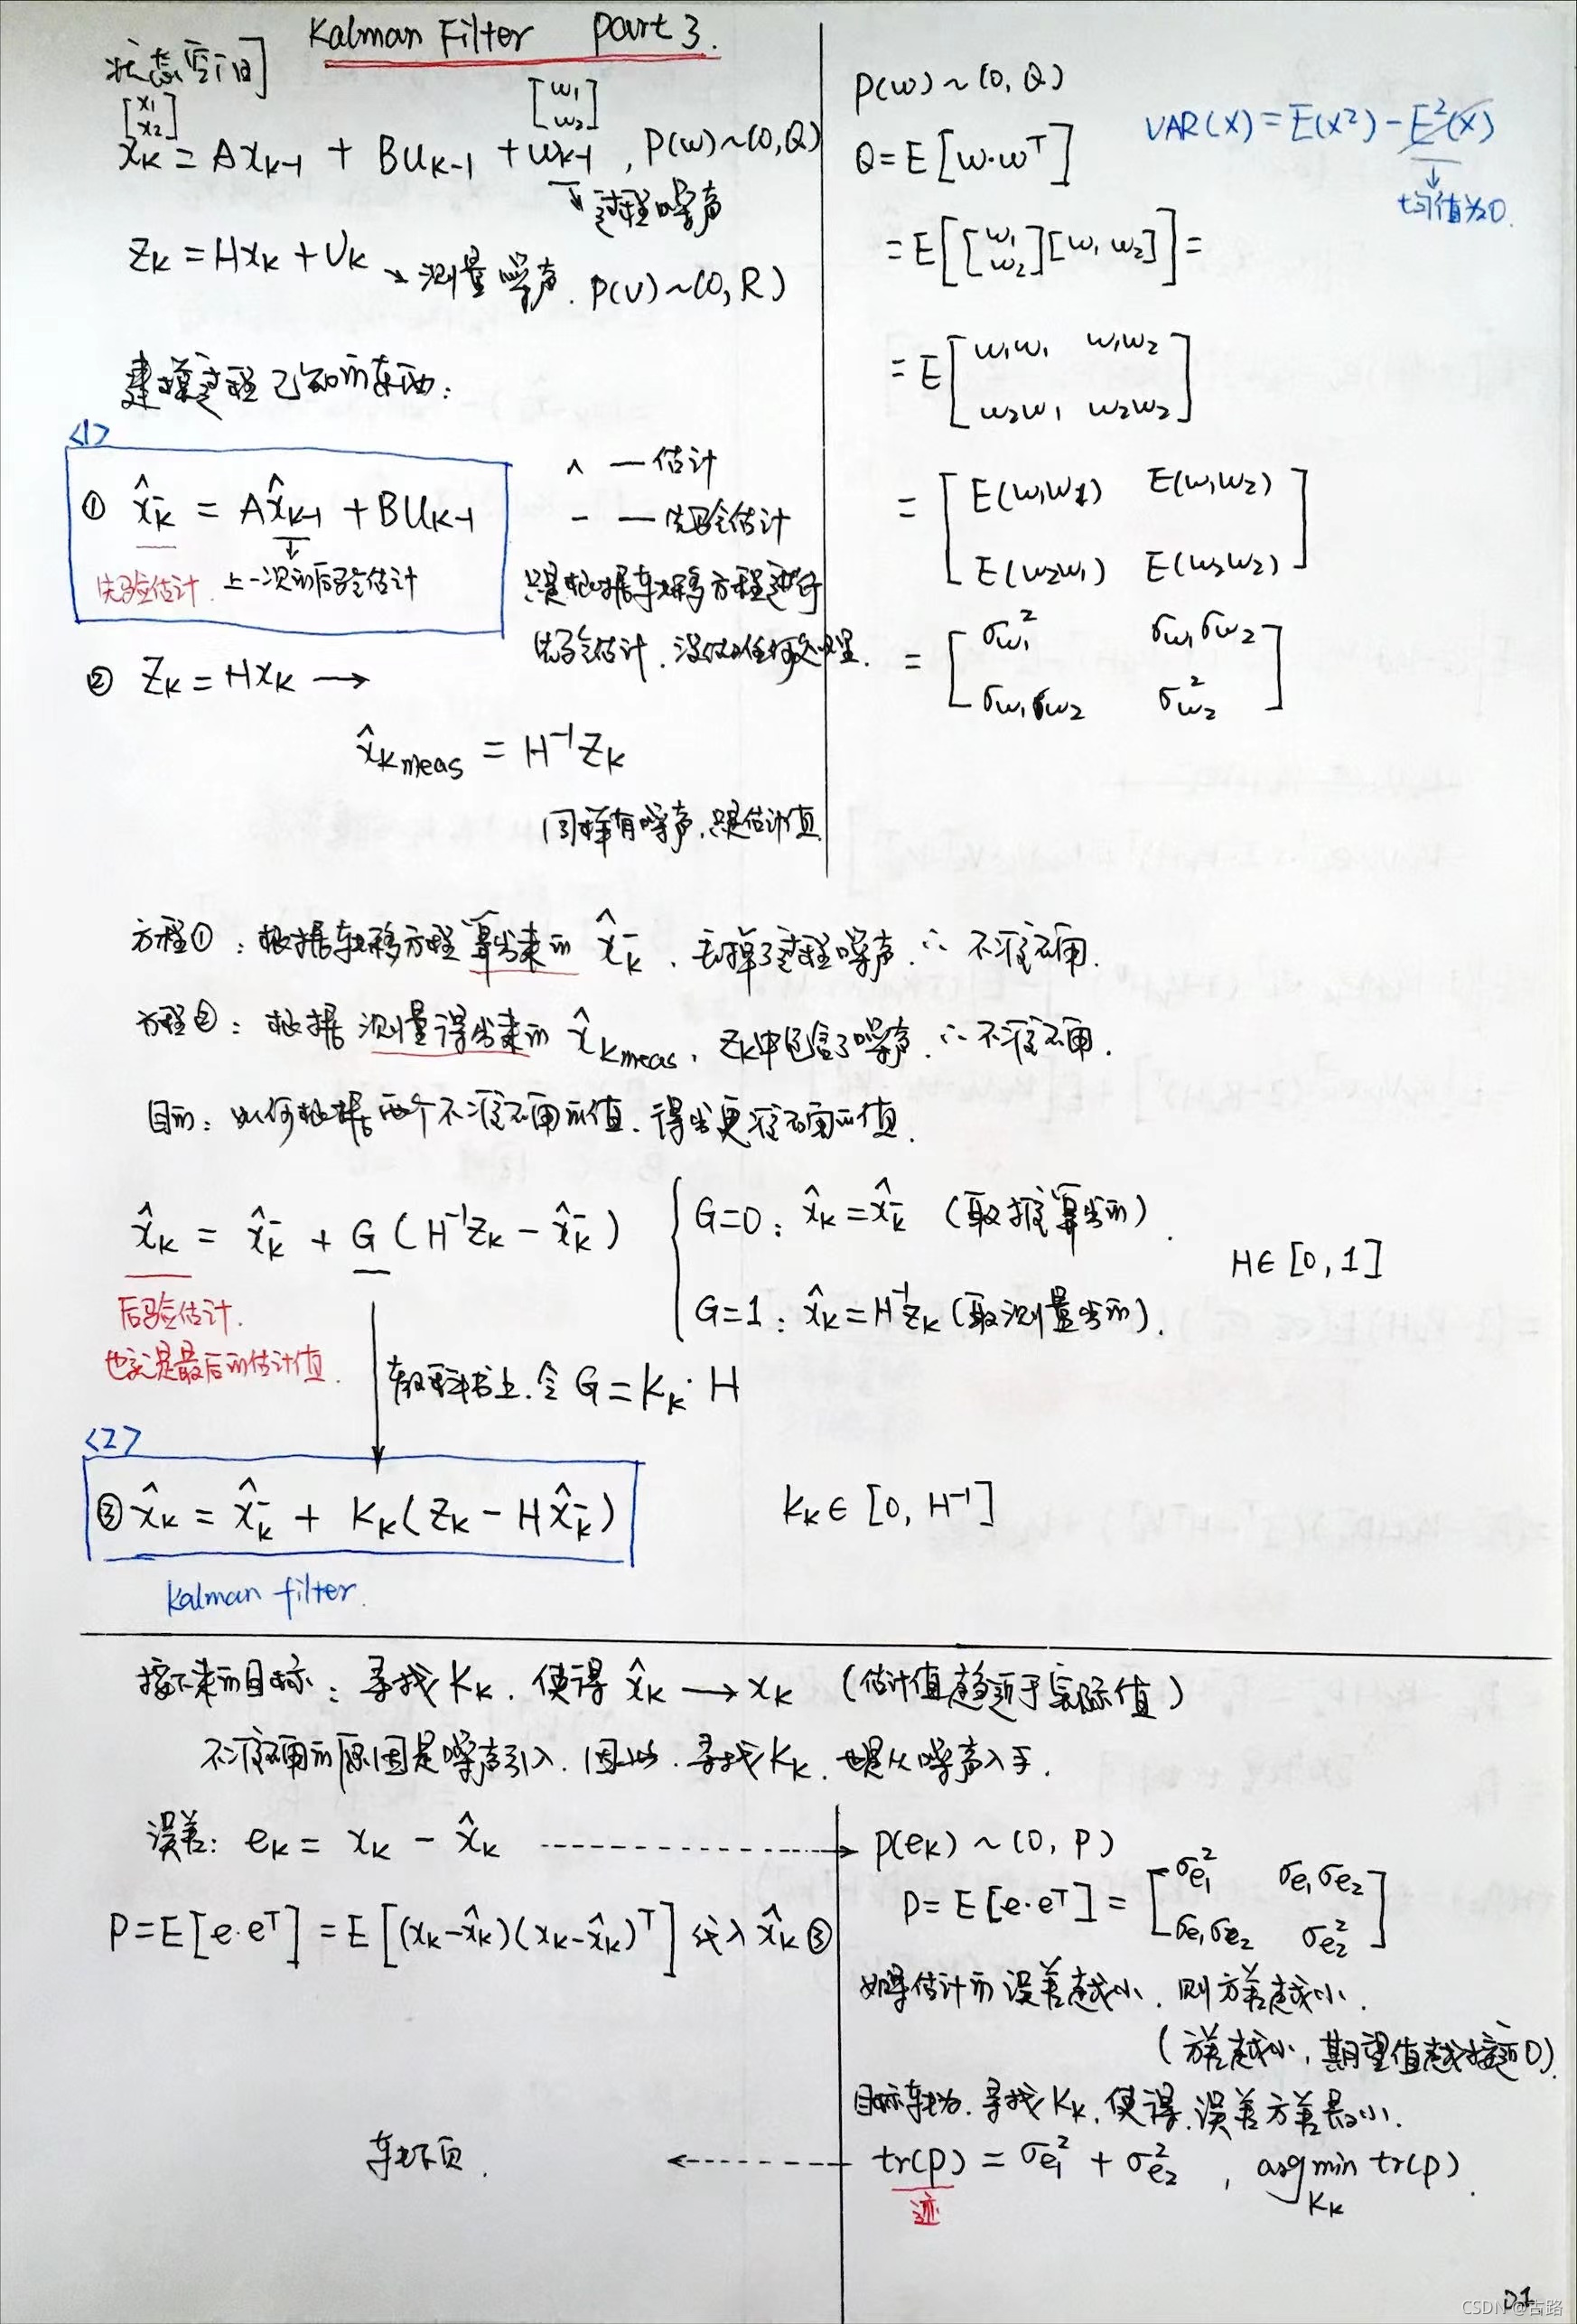 Kalman Filter Part 3.
状态空间
[x₁ x₂] [w₁ w₂]
x_k = Ax_{k-1} + Bu_{k-1} + w_{k-1}, P(w)~(0,Q)
↓过程噪声
z_k = Hx_k + v_k → 测量噪声. P(v)~(0,R)
建模过程已知的东西:
<1>
① x̂_k⁻ = Ax̂_{k-1} + Bu_{k-1}
先验估计. 上一次的后验估计
^ — 估计
- — 先验估计
只是根据转移方程进行
先验估计. 没做任何处理.
② z_k = Hx_k →
x̂_{kmeas} = H⁻¹z_k
同样有噪声,只是估计值
P(w)~(0,Q)
VAR(X) = E(X²) - E²(X)
↓
均值为0.
Q = E[w·wᵀ]
= E[[w₁ w₂][w₁ w₂]] =
= E[w₁w₁ w₁w₂
w₂w₁ w₂w₂]
= [E(w₁w₁) E(w₁w₂)
E(w₂w₁) E(w₂w₂)]
= [σ_{w₁}² σ_{w₁}σ_{w₂}
σ_{w₁}σ_{w₂} σ_{w₂}²]
方程①: 根据转移方程算出来的 x̂_k⁻, 丢掉了过程噪声. ∴ 不准确.
方程②: 根据测量得出来的 x̂_{kmeas}, z_k中包含了噪声. ∴ 不准确.
目的: 如何根据两个不准确的值. 得出更准确的值.
x̂_k = x̂_k⁻ + G(H⁻¹z_k - x̂_k⁻)
后验估计.
也就是最后的估计值.
G=0: x̂_k = x̂_k⁻ (取推算出的).
G=1: x̂_k = H⁻¹z_k (取测量出的).
H∈[0,1]
教科书上. 令 G = K_k·H
<2>
③ x̂_k = x̂_k⁻ + K_k(z_k - Hx̂_k⁻)
K_k∈[0, H⁻¹]
Kalman filter.
接下来的目标: 寻找K_k. 使得 x̂_k → x_k (估计值趋近于实际值)
不准确的原因是噪声引入. 因此. 寻找K_k. 也是从噪声入手.
误差: e_k = x_k - x̂_k
P = E[e·eᵀ] = E[(x_k-x̂_k)(x_k-x̂_k)ᵀ] 代入 x̂_k ③
P(e_k)~(0,P)
P = E[e·eᵀ] = [σ_{e₁}² σ_{e₁}σ_{e₂}
σ_{e₁}σ_{e₂} σ_{e₂}²]
如果估计的误差越小. 则方差越小.
(方差越小, 期望值越接近0).
目标转为. 寻找K_k. 使得. 误差方差最小.
tr(P) = σ_{e₁}² + σ_{e₂}², argmin tr(P).
K_k
迹
转下页.
CSDN @古路